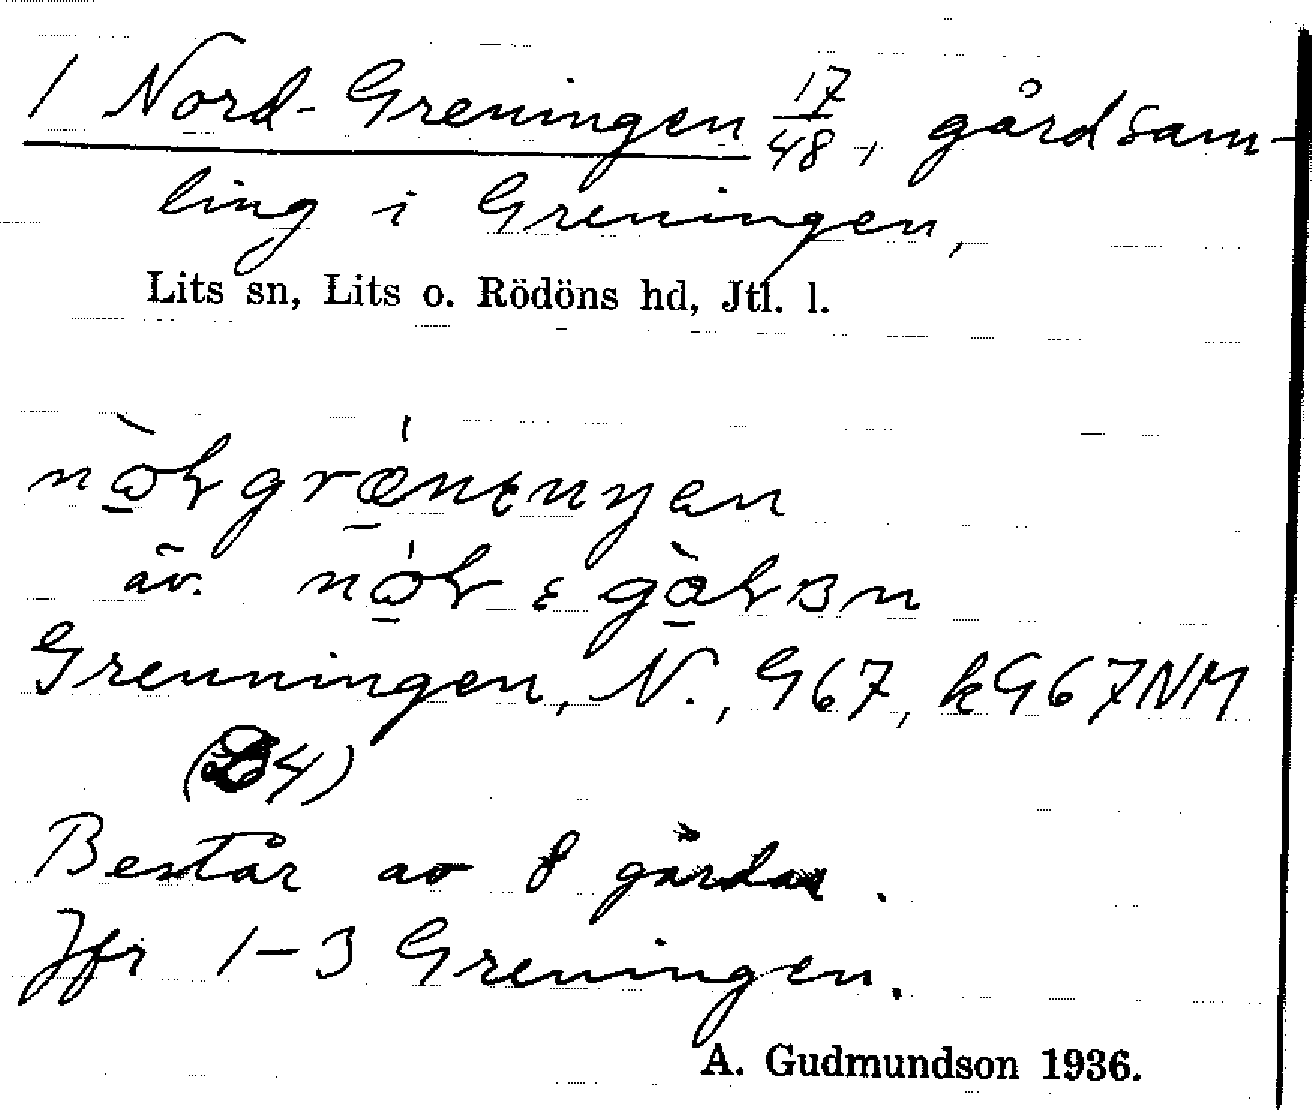 1 Nord-Greningen 17/48, gårdsam-
ling i Greningen,
Lits sn, Lits o. Rödöns hd, Jtl. l.
äv.
Grenningen, N., G67, kG67NM
4)
Består av 8 gårdar.
Jfr 1-3 Greningen.
A. Gudmundson 1936.